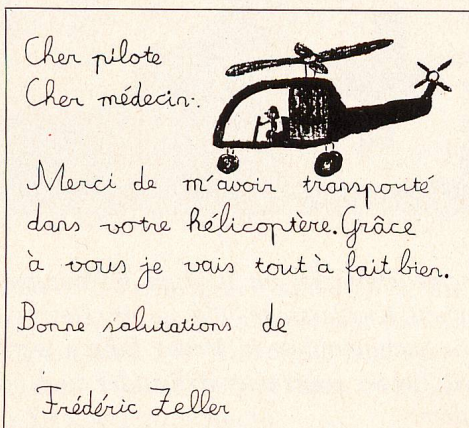 Cher pilote
Cher médecin.
Merci de m'avoir transporté
dans votre hélicoptère. Grâce
à vous je vais tout à fait bien.
Bonne salutations de
Frédéric Zeller